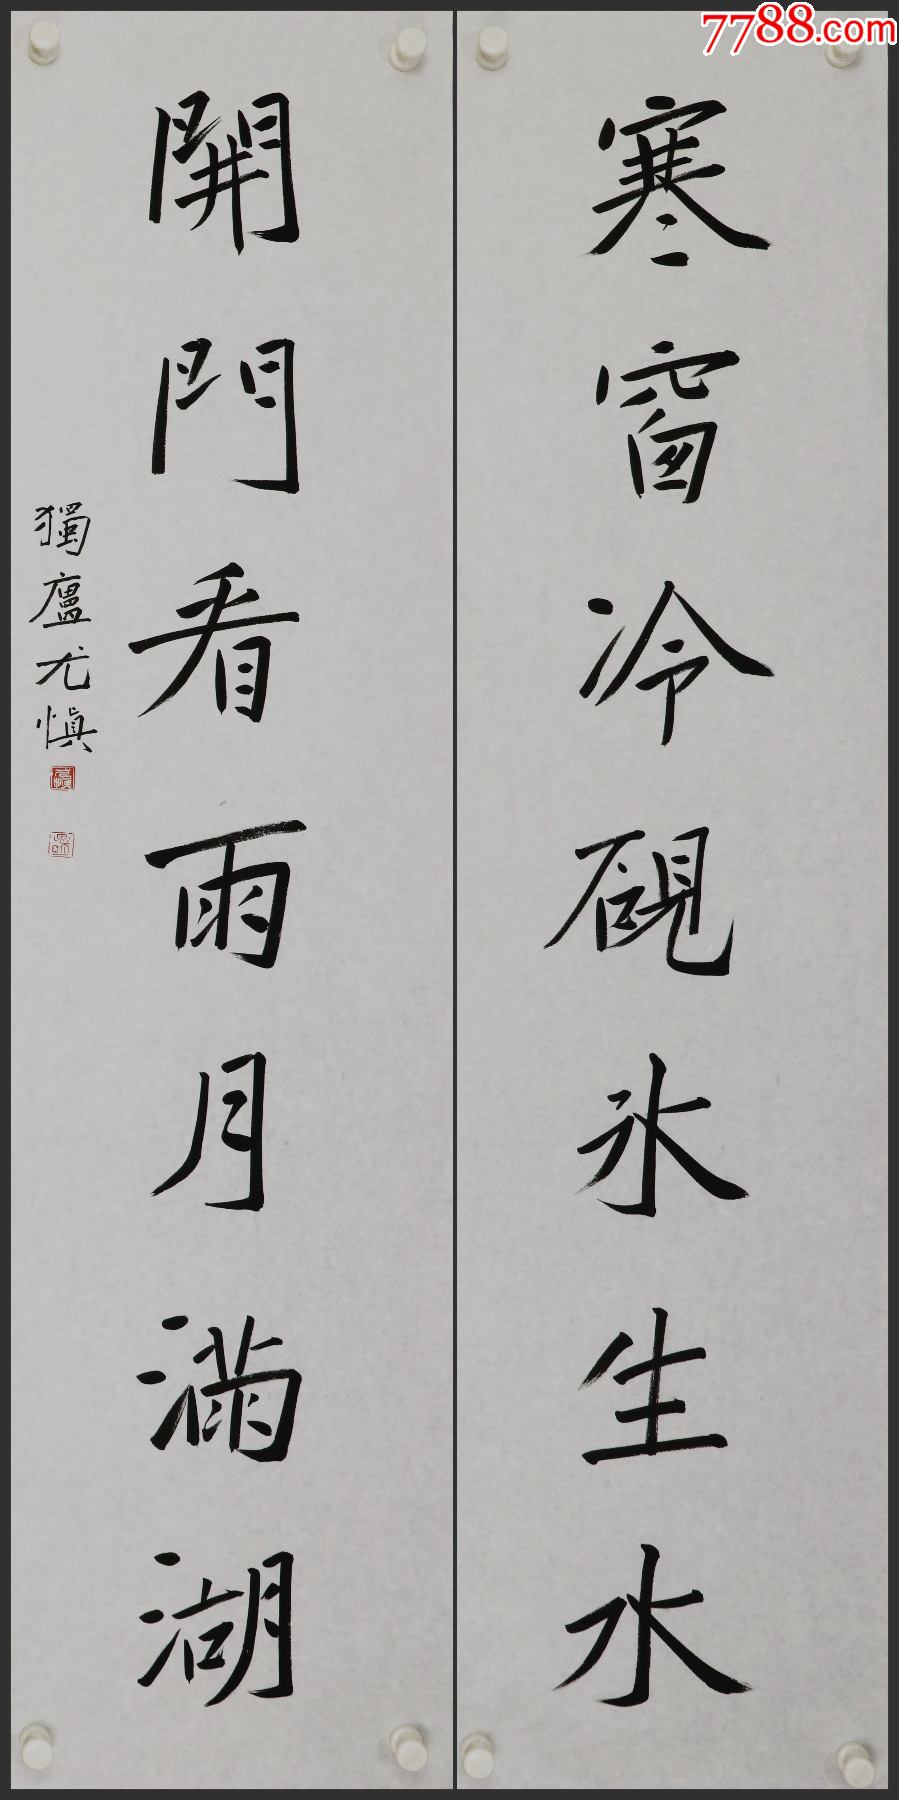 7788.com
寒窗冷硯氷生水
開門看雨月滿湖
獨廬尤慎